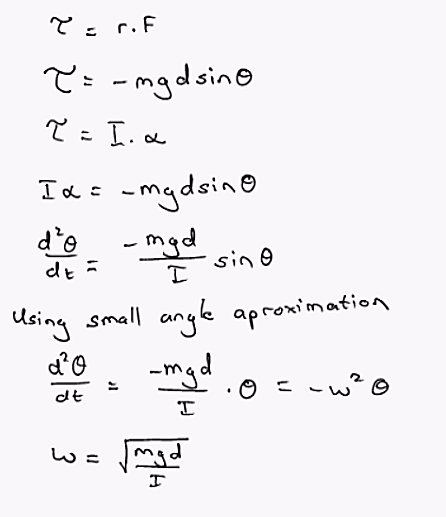 τ = r.F
τ = -mgdsinθ
τ = I.α
Iα = -mgdsinθ
d²θ/dt = -mgd/I sinθ
Using small angle aproximation
d²θ/dt = -mgd/I . θ = -w²θ
w = √(mgd/I)